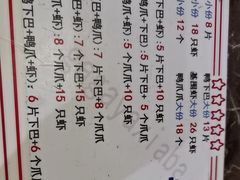 ☆☆☆☆☆
小份 8 片 鸭下巴大份 13 片
小份 18 只虾 基围虾大份 26 只虾
小份 12 个 鸭爪爪大份 18 个
下巴+虾):5 片下巴+10 只虾
鸭爪+下巴):5 片下巴+5 个爪爪
鸭爪+虾):5 个爪爪+10 只虾
巴+鸭爪):7 片下巴+8 个爪爪
巴+虾):7 个下巴+15 只虾
鸭爪+虾):8 个爪爪+15 只虾
巴+鸭爪+虾):6 片下巴+6 个爪